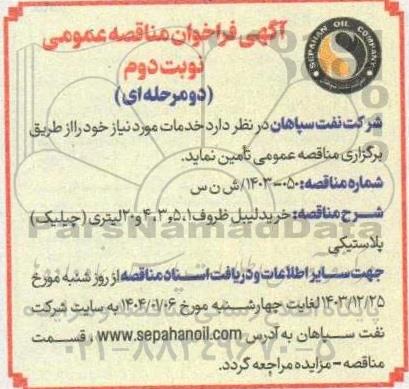 SEPAHAN OIL COMPANY
آگهی فراخوان مناقصه عمومی
نوبت دوم
(دو مرحله ای)
شرکت نفت سپاهان در نظر دارد خدمات مورد نیاز خود را از طریق
برگزاری مناقصه عمومی تأمین نماید.
شماره مناقصه: ۰۵۰-۱۴۰۳/ش ن س
شرح مناقصه: خرید لیبل ظروف ۱،۵،۳،۴ و ۲۰ لیتری (چیلیک)
پلاستیکی
جهت سایر اطلاعات و دریافت اسناد مناقصه از روز شنبه مورخ
۱۴۰۳/۱۲/۲۵ لغایت چهارشنبه مورخ ۱۴۰۴/۰۱/۰۶ به سایت شرکت
نفت سپاهان به آدرس www.sepahanoil.com ، قسمت
مناقصه - مزایده مراجعه گردد.
ParsNamadData